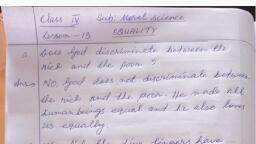 Class IX Sub: Moral science
Lesson - 13
EQUALITY
a. Does God discriminate between the
rich and the poor?
Ans → NO, God does not discriminate between
the rich and the poor. He made all
human beings equal and he also loves
us equally.
five fingers have